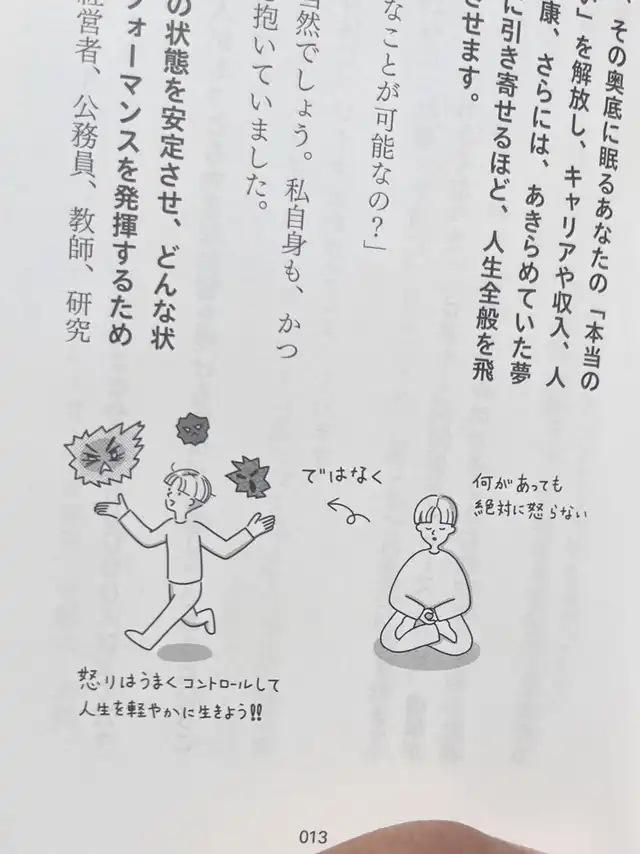 、その奥底に眠るあなたの「本当の
」を解放し、キャリアや収入、人
康、さらには、あきらめていた夢
に引き寄せるほど、人生全般を飛
させます。
なことが可能なの?」
然でしょう。私自身も、かつ
抱いていました。
の状態を安定させ、どんな状
フォーマンスを発揮するため
経営者、公務員、教師、研究
何があっても
絶対に怒らない
ではなく
怒りはうまくコントロールして
人生を軽やかに生きよう!!
013